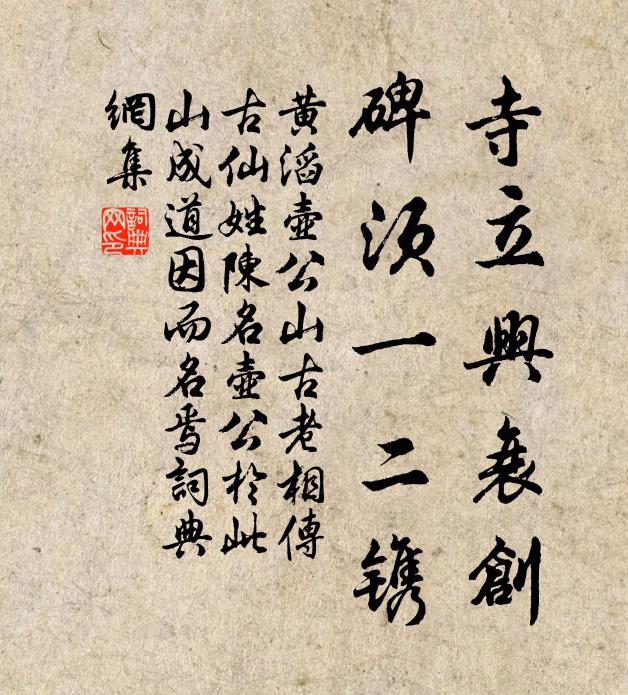 寺立興衰創
碑須一二镌
黄滔壺公山古老相傳
古仙姓陳名壺公於此
山成道因而名焉詞典
網集
詞典網印